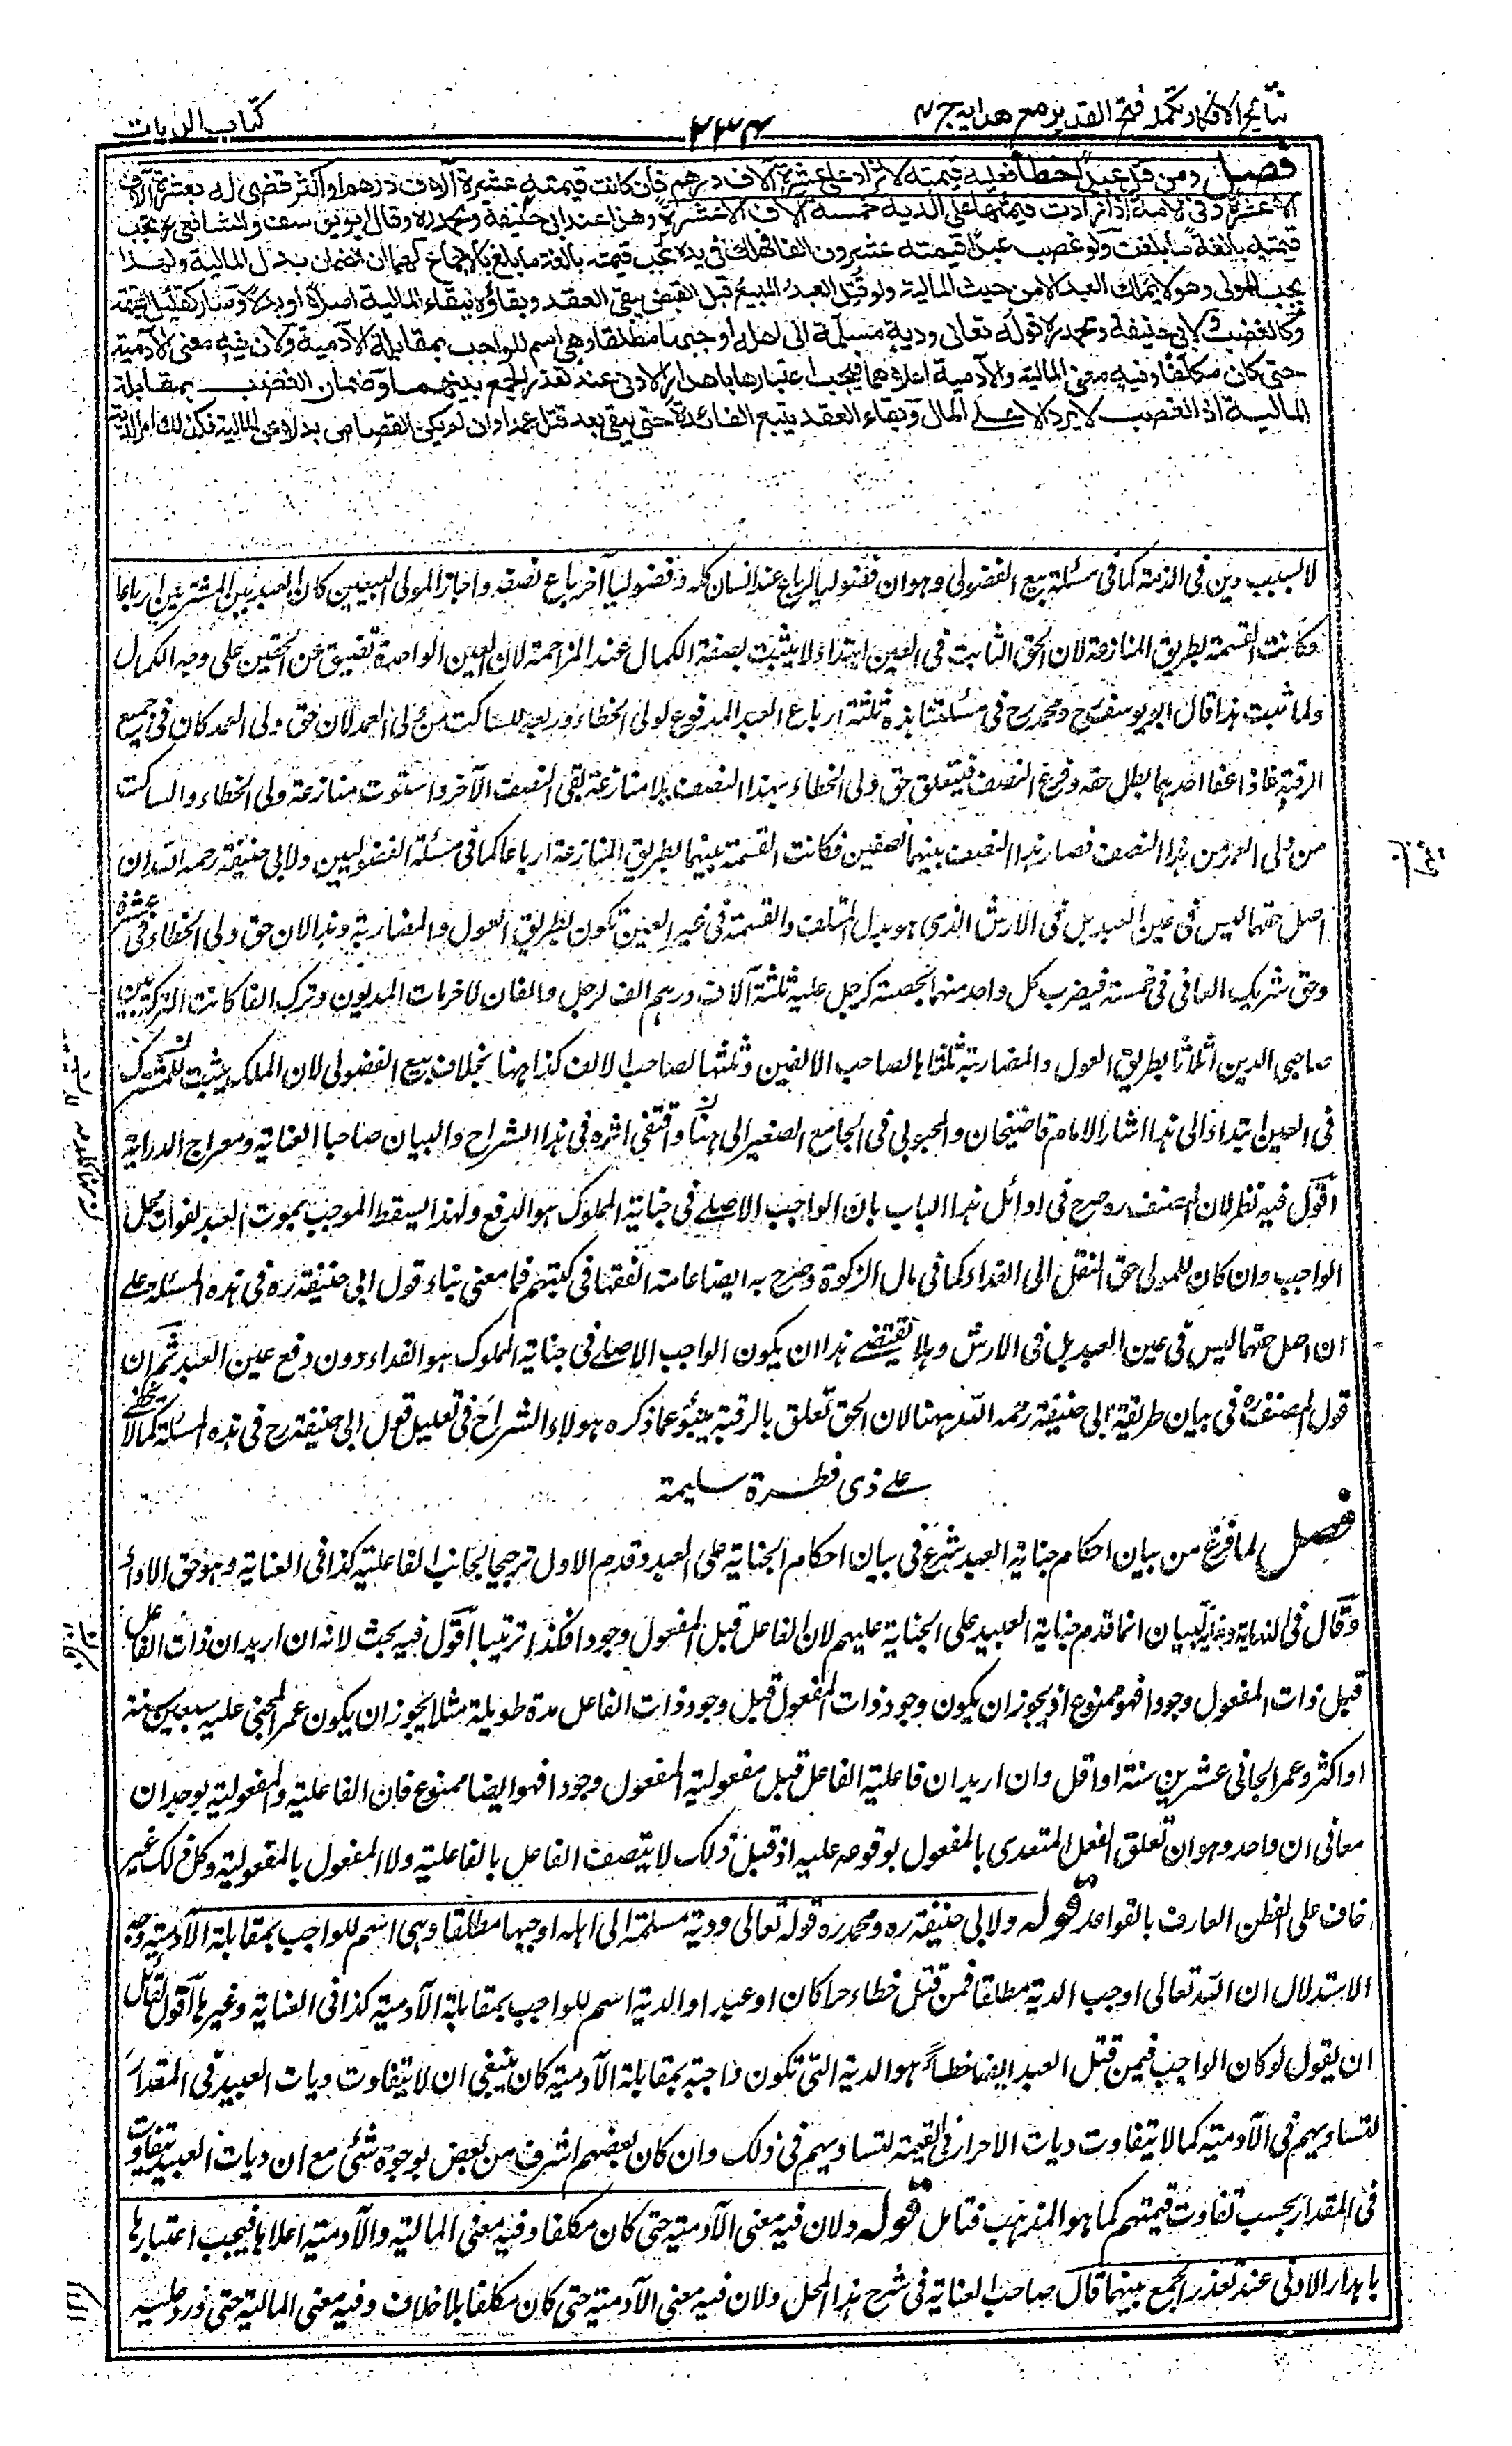 نتائج الافكار تكملة فتح القدير مع هدايه ج ٤
٣٣٤
كتاب الديات
فصل ومن قتل عبدا خطأ فعليه قيمته لا تزاد على عشرة آلاف درهم فان كانت قيمته عشرة آلاف درهم او اكثر قضى له بعشرة آلاف
الا عشرة وفى الامة اذا زادت قيمتها على الدية خمسة آلاف الا عشرة وهذا عند ابى حنيفة ومحمد ره وقال ابو يوسف والشافعى ره تجب
قيمته بالغة ما بلغت ولو غصب عبدا قيمته عشرون الفا فهلك فى يده تجب قيمته بالغة ما بلغ بالاجماع لهما ان الضمان بدل المالية ولهذا
يجب للمولى وهو لا يملك العبد الا من حيث المالية ولو قتل العبد المبيع قبل القبض يبقى العقد وبقاؤه ببقاء المالية اصلا او بدلا وصار كقليل القيمة
وكالغصب ولابى حنيفة ومحمد ره قوله تعالى ودية مسلمة الى اهله اوجبها مطلقا وهى اسم للواجب بمقابلة الآدمية ولان فيه معنى الآدمية
حتى كان مكلفا وفيه معنى المالية والآدمية اعلاهما فيجب اعتبارها باهدار الادنى عند تعذر الجمع بينهما وضمان الغصب بمقابلة
المالية اذ الغصب لا يرد الا على المال وبقاء العقد يتبع الفائدة حتى يبقى بعد قتله عمدا وان لم يكن القصاص بدلا عن المالية فكذلك امر الدية
لا بسبب دين فى الذمة كما فى مسئلة بيع الفضولى وهو ان فضوليا لو باع عبد انسان كله وفضوليا آخر باع نصفه واجاز المولى البيعين كان العبد بين المشتريين ارباعا
فكانت القسمة بطريق المنازعة لان الحق الثابت فى العين ابتداء لا يثبت بصفة الكمال عند المزاحمة لان العين الواحدة تضيق عن الحقين على وجه الكمال
ولما ثبت هذا قال ابو يوسف رح ومحمد رح فى مسئلتنا هذه ثلثة ارباع العبد المدفوع لولى الخطاء وربعه للساكت من ولى العمد لان حق ولى العمد كان فى جميع
الرقبة فاذا عفا احدهما بطل حقه وفرغ النصف فيتعلق حق ولى الخطاء بهذا النصف بلا منازعة بقى النصف الآخر واستوت منازعة ولى الخطاء والساكت
من ولى العمد من هذا النصف فصار هذا النصف بينهما نصفين فكانت القسمة بينهما بطريق المنازعة ارباعا كما فى مسئلة الفضوليين ولابى حنيفة رحمه الله ان
اصل حقهما ليس فى عين العبد بل فى الارش الذى هو بدل المتلف والقسمة فى غير العين تكون بطريق العول والمضاربة وهذا لان حق ولى الخطاء فى عشرة
وحق شريك العافى فى خمسة فيضرب كل واحد منهما بحصته كرجل عليه ثلثة آلاف درهم الف لرجل والفان لآخر مات المديون وترك الفا كانت التركة بين
صاحبى الدين اثلاثا بطريق العول والمضاربة ثلثاها لصاحب الالفين وثلثها لصاحب الالف كذا ههنا بخلاف بيع الفضولى لان الملك يثبت للمشترى
فى العين ابتداء الى هذا اشار الامام قاضيخان والمحبوبى فى الجامع الصغير الى هنا واقتفى اثره فى هذا الشراح والبيان صاحبا العناية ومعراج الدراية
اقول فيه نظر لان المصنف ره صرح فى اوائل هذا الباب بان الواجب الاصلى فى جناية المملوك هو الدفع ولهذا يسقط الموجب بموت العبد لفوات محل
الواجب وان كان للمولى حق النقل الى الفداء كما فى مال الزكوة وصرح به ايضا عامة الفقهاء فى كتبهم فما معنى بناء قول ابى حنيفة ره فى هذه المسئلة على
ان اصل حقهما ليس فى عين العبد بل فى الارش وهلا يقتضى هذا ان يكون الواجب الاصلى فى جناية المملوك هو الفداء دون دفع عين العبد ثم ان
قول المصنف ره فى بيان طريقة ابى حنيفة رحمه الله ههنا لان الحق تعلق بالرقبة ينبؤ عما ذكره هولاء الشراح فى تعليل قول ابى حنيفة رح فى هذه المسئلة كما لا يخفى
على ذى فطرة سليمة
فصل لما فرغ من بيان احكام جناية العبد شرع فى بيان احكام الجناية على العبد وقدم الاول ترجيحا لجانب الفاعلية كذا فى العناية وهو حق الاداء
وقال فى النهاية وغاية البيان انما قدم جناية العبيد على الجناية عليهم لان الفاعل قبل المفعول وجودا فكذا ترتيبا اقول فيه بحث لانه ان اريد ان ذات الفاعل
قبل ذات المفعول وجودا فهو ممنوع اذ يجوز ان يكون وجود ذات المفعول قبل وجود ذات الفاعل مدة طويلة مثلا يجوز ان يكون عمر المجنى عليه سبعين سنة
او اكثر وعمر الجانى عشرين سنة او اقل وان اريد ان فاعلية الفاعل قبل مفعولية المفعول وجودا فهو ايضا ممنوع فان الفاعلية والمفعولية يوجدان
معا فى ان واحد وهو ان تعلق الفعل المتعدى بالمفعول بوقوعه عليه اذ قبل ذلك لا يتصف الفاعل بالفاعلية ولا المفعول بالمفعولية وكل ذلك غير
خاف على الفطن العارف بالقواعد قوله ولابى حنيفة ره ومحمد ره قوله تعالى ودية مسلمة الى اهله اوجبها مطلقا وهى اسم للواجب بمقابلة الآدمية وجه
الاستدلال ان الله تعالى اوجب الدية مطلقا فمن قتل خطاء حرا كان او عبدا والدية اسم للواجب بمقابلة الآدمية كذا فى العناية وغيرها اقول لقائل
ان يقول لو كان الواجب فيمن قتل العبد ايضا خطأ هو الدية التى تكون واجبة بمقابلة الآدمية كان ينبغى ان لا يتفاوت ديات العبيد فى المقدار
لتساويهم فى الآدمية كما لا يتفاوت ديات الاحرار فى القيمة لتساويهم فى ذلك وان كان بعضهم اشرف من بعض بوجوه شتى مع ان ديات العبيد يتفاوت
فى المقدار بحسب تفاوت قيمتهم كما هو المذهب فتامل قوله ولان فيه معنى الآدمية حتى كان مكلفا وفيه معنى المالية والآدمية اعلاها فيجب اعتبارها
باهدار الادنى عند تعذر الجمع بينهما قال صاحب العناية فى شرح هذا المحل ولان فيه معنى الآدمية حتى كان مكلفا بلا خلاف وفيه معنى المالية حتى ورد عليه